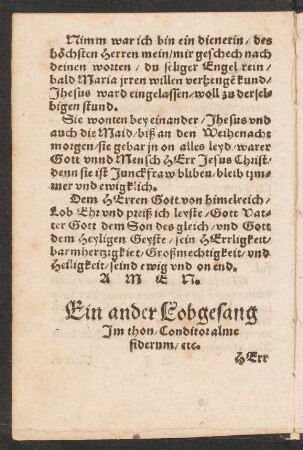 Nimm war ich bin ein dienerin / des
höchsten Herren mein / mir geschech nach
deinen worten / du seliger Engel rein /
bald Maria jren willen verhengẽt kund /
Jhesus ward eingelassen / woll zu dersel-
bigen stund.
Sie wonten bey einander / Jhesus vnd
auch die Maid / biß an den Weihenacht
morgen / sie gebar jn on alles leyd / warer
Gott vnnd Mensch HErr Jesus Christ /
denn sie ist Junckfraw bliben / bleib tjm-
mer vnd ewigklich.
Dem HErren Gott von himelreich /
Lob Ehr vnd preiß ich leyste / Gott Vat-
ter Gott dem Son des gleich / vnd Gott
dem Heyligen Geyste / sein HErrligkeit /
barmhertzigkiet / Großmechtigkeit / vnd
Heiligkeit / seind ewig vnd on end.
A M E N.
Ein ander Lobgesang
Im thon / Conditor alme
siderum / etc.
HErr